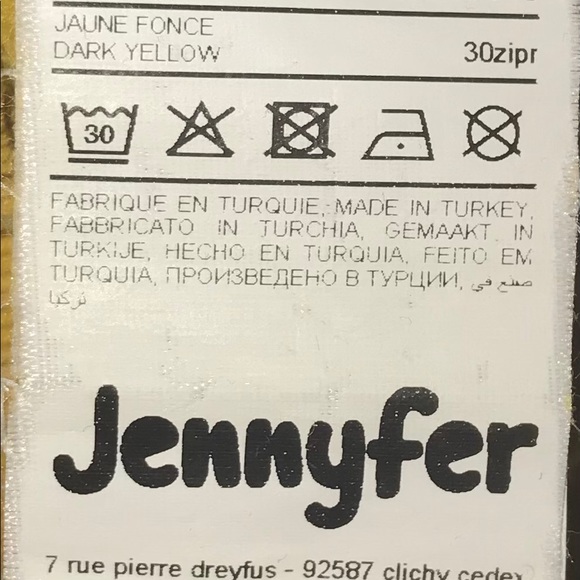 JAUNE FONCE
DARK YELLOW 30zipr
30
FABRIQUE EN TURQUIE, MADE IN TURKEY,
FABBRICATO IN TURCHIA, GEMAAKT IN
TURKIJE, HECHO EN TURQUIA, FEITO EM
TURQUIA, ПРОИЗВЕДЕНО В ТУРЦИИ, صنع في
تركيا
Jennyfer
7 rue pierre dreyfus - 92587 clichy cedex